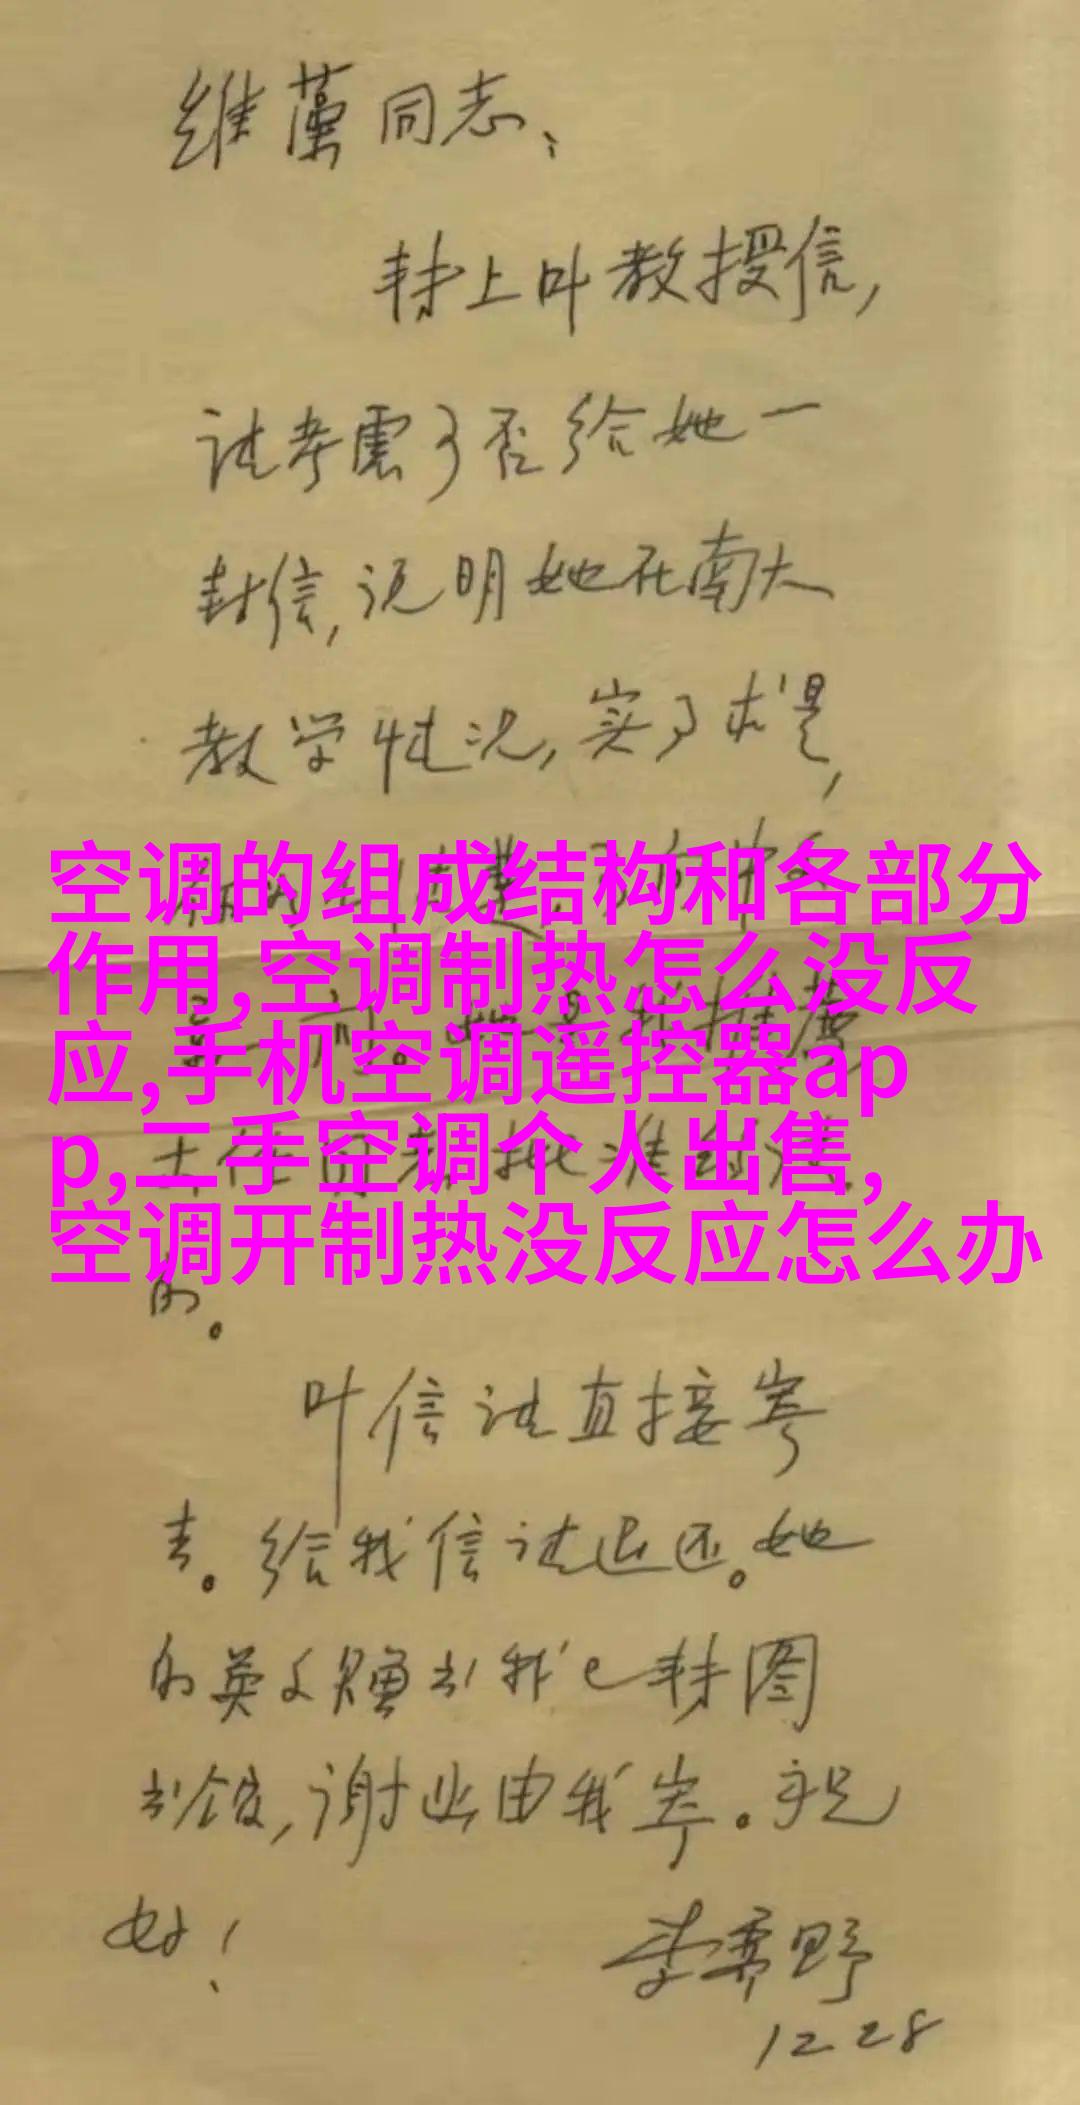 维藻同志：
转上叶教授信，
请考虑可否给她一
封信，说明她在南大
教学情况，实事求是，
空调的组成结构和各部分
作用,空调制热怎么没反
应,手机空调遥控器ap
p,二手空调个人出售,
空调开制热没反应怎么办
的。
叶信请直接寄
去。给我信请退还。她
的英文赠书我已转图
书馆，谢函由我寄。祝
好！
李霁野
12 28